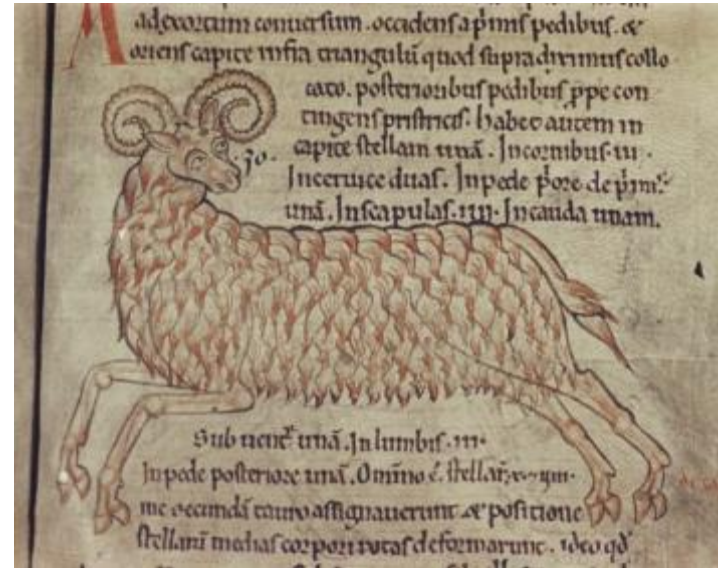 ad exortum conuersum. occidens a p̄mis pedibus. &
oriens capite infra triangulū quod supra diximus collo
cato. posterioribus pedibus p̄pe con
tingens pristricis. habet autem in
capite stellam unā. In cornibus. iii.
In ceruice duas. In pede p̄ore de p̄mis
unā. In scapulas. iiii. In cauda unam.
io.
Sub uent̄ unā. In lumbis. iii.
In pede posteriore unā. Omīno ē. stellaꝝ
me occundā tauro assignauerunt & positione
stellarū medias corpori notas deformarunt. ideo qd̄